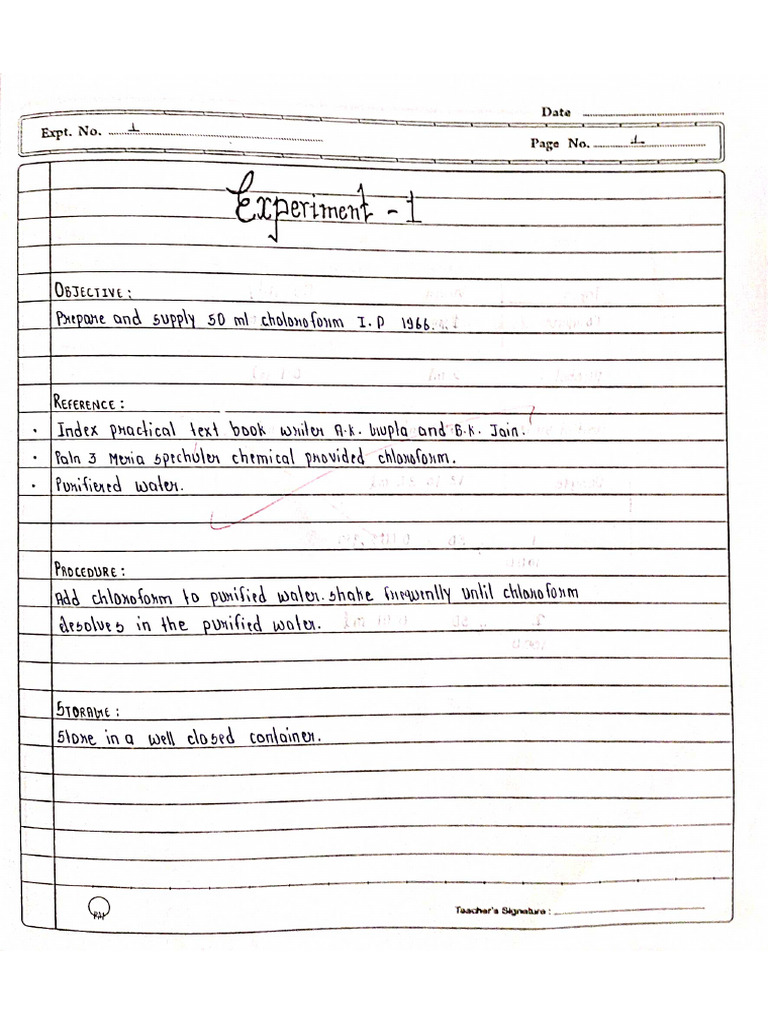 Date
Expt. No. 1
Page No. 1
Experiment - 1
OBJECTIVE :
Prepare and supply 50 ml choloroform I.P 1966.
REFERENCE :
• Index practical text book writer A.K. Gupta and B.K. Jain.
• Paln 3 Meria spechuler chemical provided chloroform.
• Purifiered water.
PROCEDURE :
Add chloroform to purified water. shake frequently until chloroform
desolves in the purified water.
STORAGE :
Store in a well closed container.
RAJ
Teacher's Signature :